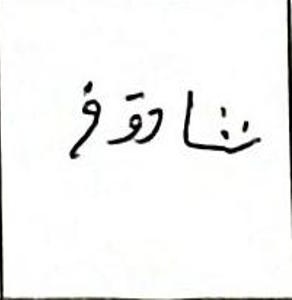 شادوف